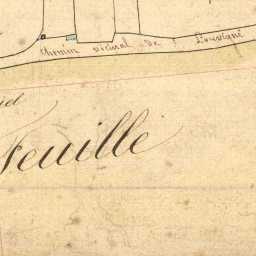 Chemin vicinal de Louvigné
Feuille